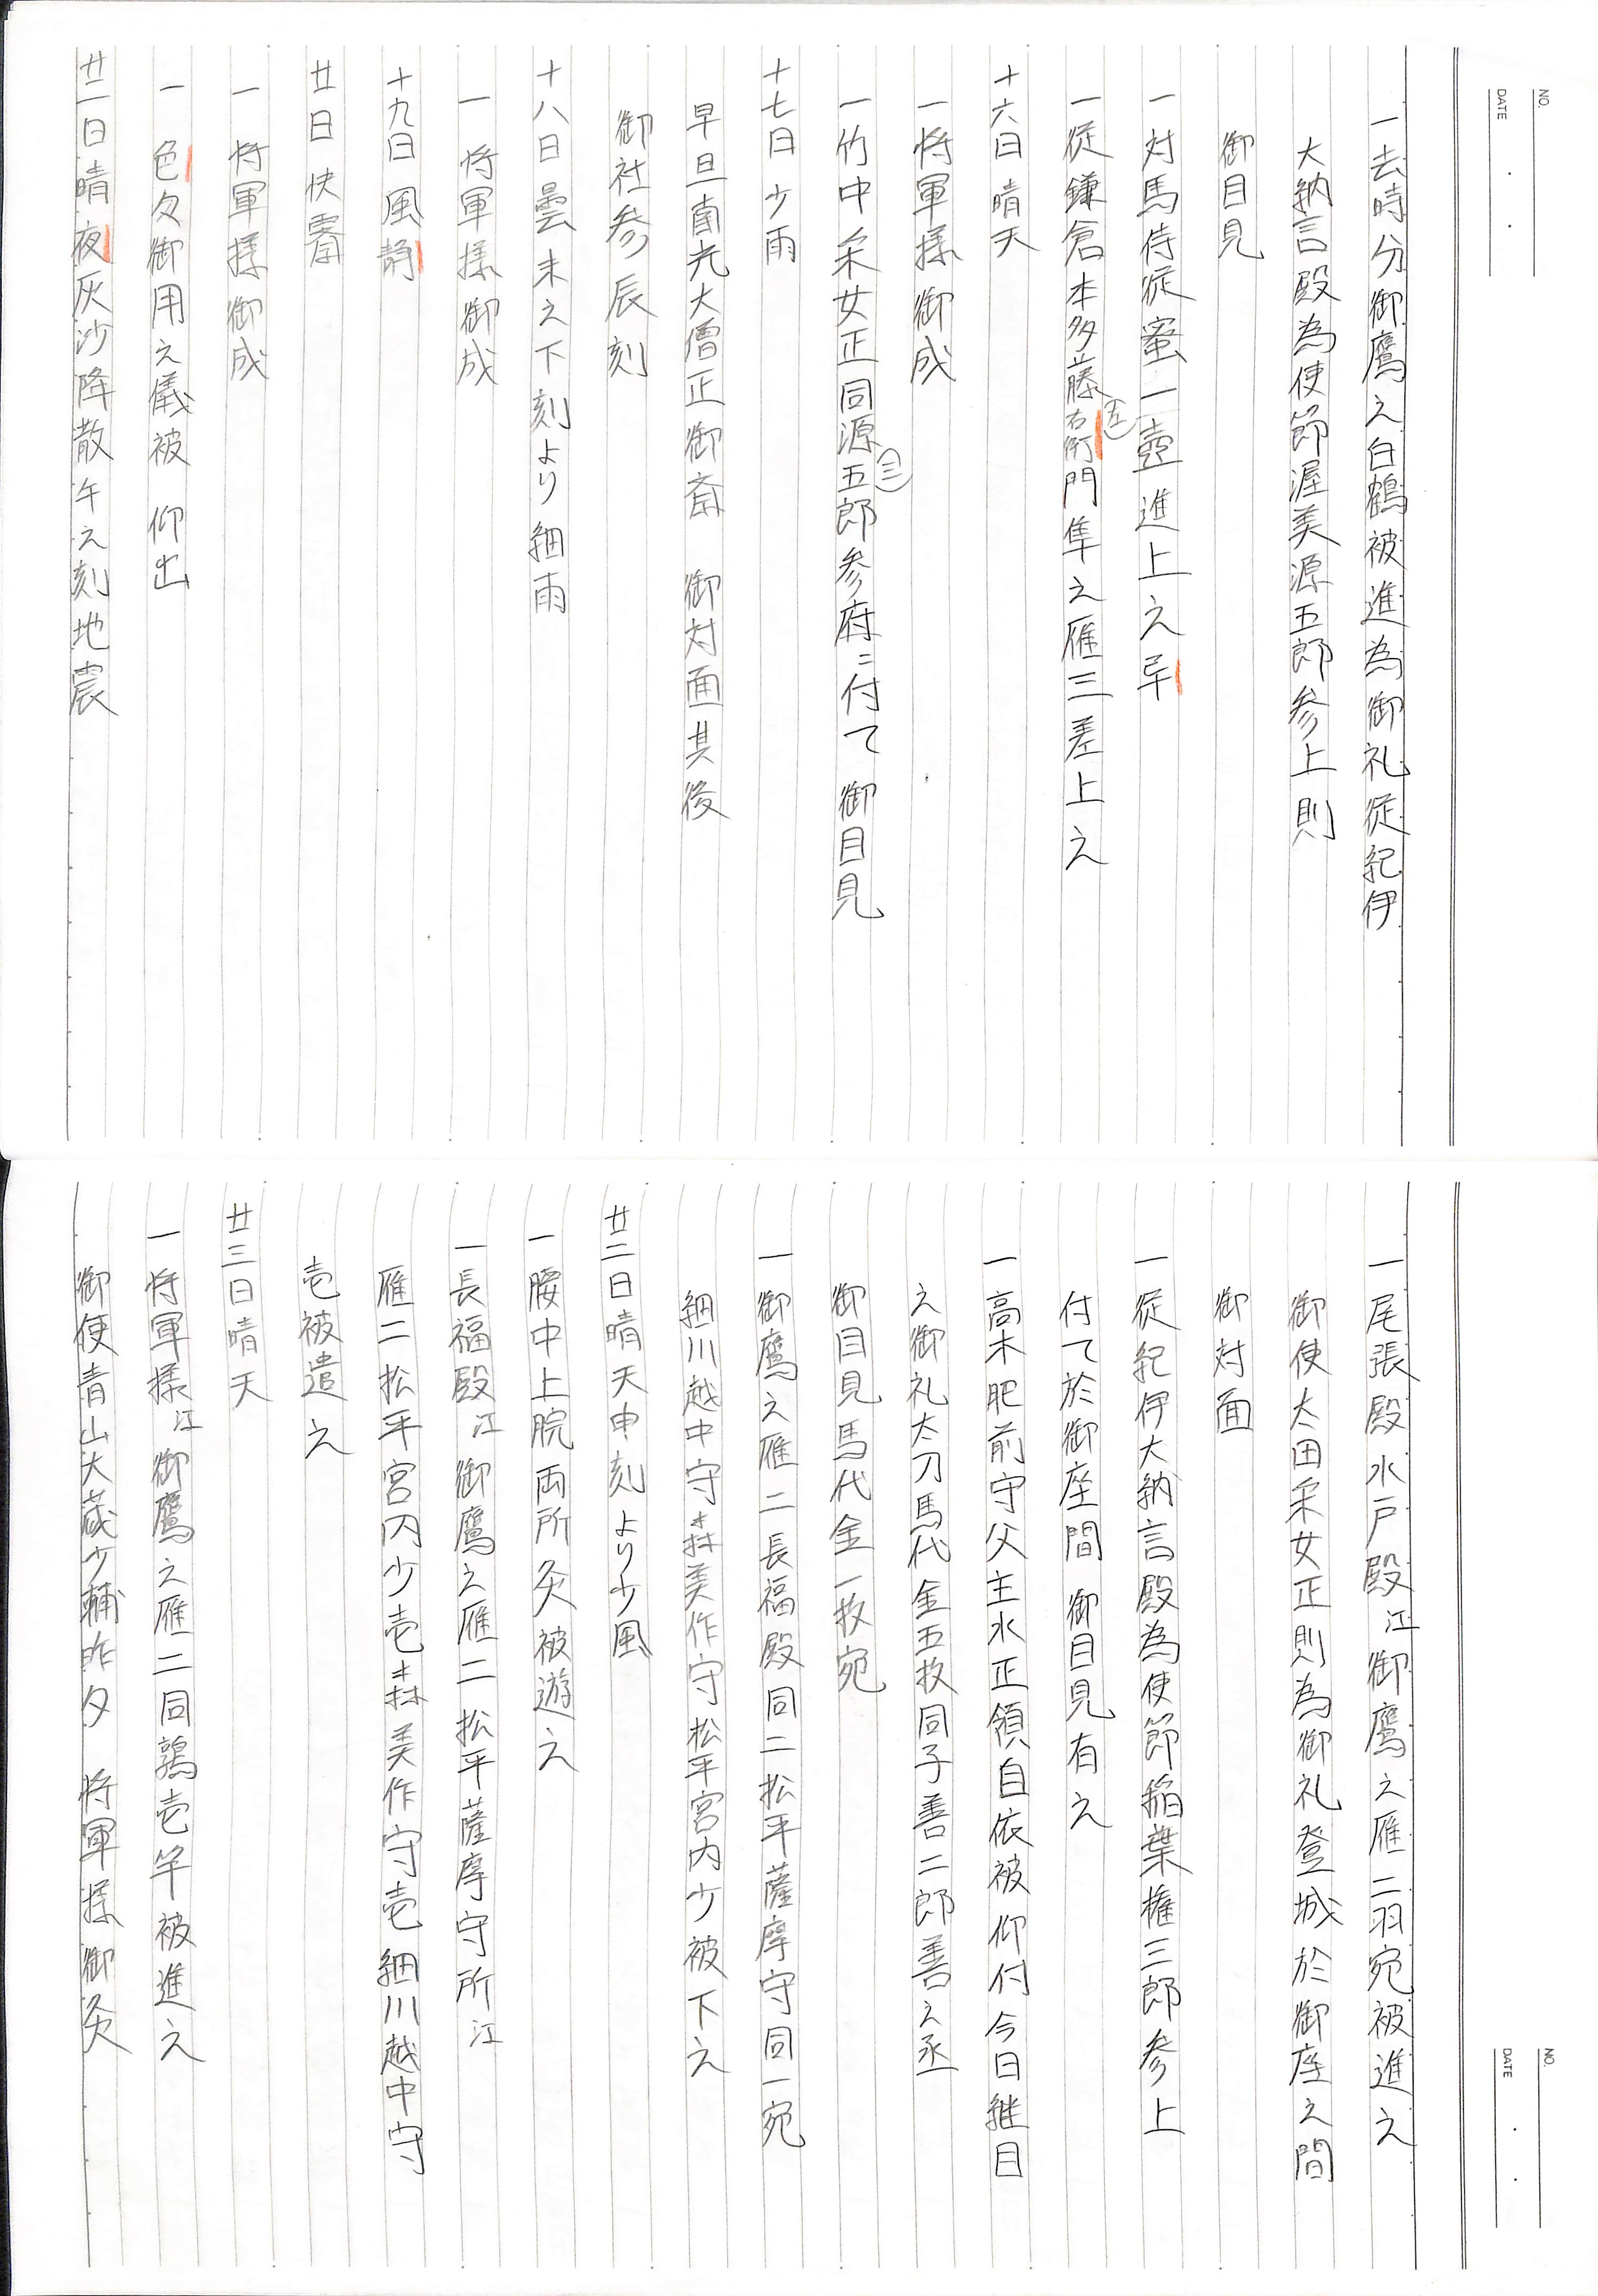 NO.
DATE
一去時分御鷹之白鶴被進為御礼従紀伊
大納言殿為使節渥美源五郎参上則
御目見
一対馬侍従蜜一壺進上之
一従鎌倉本多藤右衛門隼之雁三差上之
左
十六日晴天
一将軍様御成
一竹中采女正同源五郎参府ニ付て御目見
三
十七日少雨
早旦南光大僧正御斎 御対面其後
御社参辰刻
十八日曇未之下刻より細雨
一 将軍様御成
十九日風静
廿日快霽
一 将軍様御成
一 色々御用之儀被 仰出
廿一日晴夜灰沙降散午之刻地震
NO.
DATE
一尾張殿水戸殿江御鷹之雁二羽宛被進之
御使太田采女正則為御礼登城於御座之間
御対面
一従紀伊大納言殿為使節稲葉権三郎参上
付て於御座間 御目見有之
一高木肥前守父主水正領自依被仰付今日継目
之御礼太刀馬代金五枚同子善二郎善之丞
御目見馬代金一枚宛
一御鷹之雁二長福殿同二松平薩摩守同一宛
細川越中守森美作守松平宮内少被下之
廿二日晴天申刻より少風
一腰中上脘両所灸被遊之
一長福殿江御鷹之雁二松平薩摩守所江
雁二松平宮内少壱森美作守壱細川越中守
壱被遣之
廿三日晴天
一将軍様江御鷹之雁二同鶉壱竿被進之
御使青山大蔵少輔昨夕 将軍様御灸